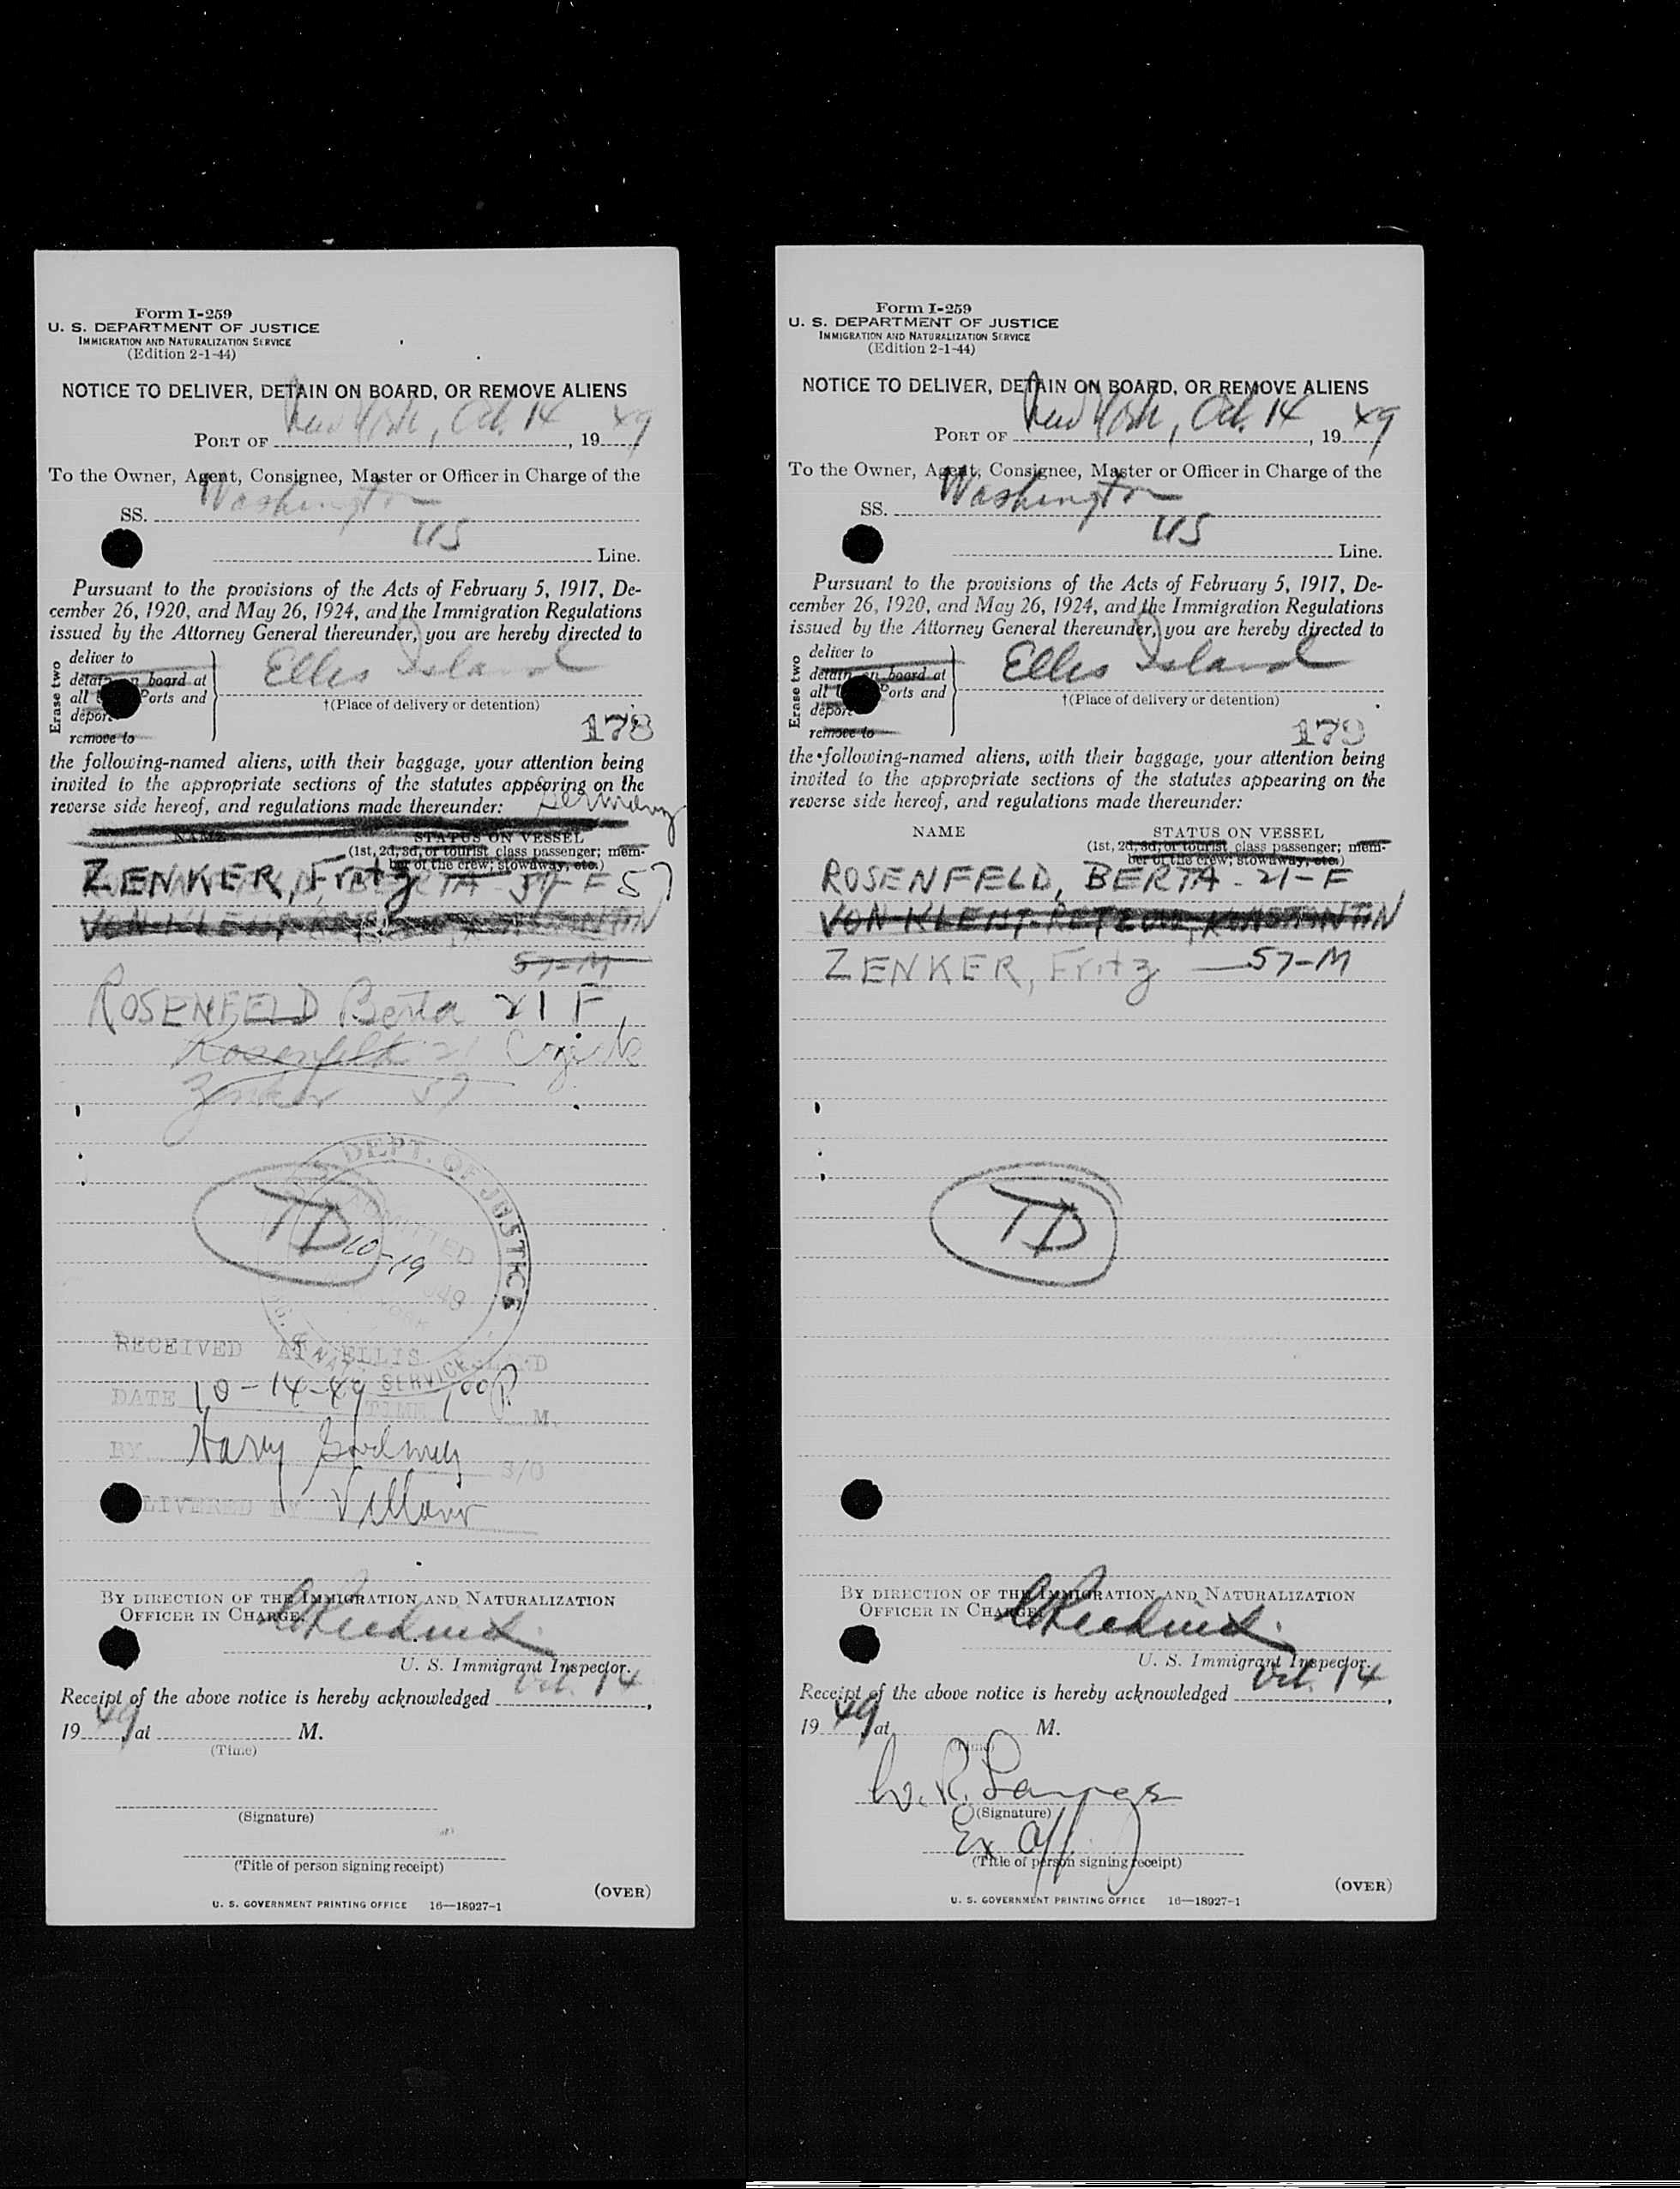 Form I-259
U. S. DEPARTMENT OF JUSTICE
IMMIGRATION AND NATURALIZATION SERVICE
(Edition 2-1-44)
NOTICE TO DELIVER, DETAIN ON BOARD, OR REMOVE ALIENS
PORT OF New York, Oct. 14, 1949
To the Owner, Agent, Consignee, Master or Officer in Charge of the
SS. Washington
US Line.
Pursuant to the provisions of the Acts of February 5, 1917, De-
cember 26, 1920, and May 26, 1924, and the Immigration Regulations
issued by the Attorney General thereunder, you are hereby directed to
Erase two
deliver to
detain on board at
all U Ports and
deport
remove to
Ellis Island
†(Place of delivery or detention)
178
the following-named aliens, with their baggage, your attention being
invited to the appropriate sections of the statutes appearing on the
reverse side hereof, and regulations made thereunder:
Germany
NAME STATUS ON VESSEL
(1st, 2d, 3d, or tourist class passenger; mem-
ber of the crew; stowaway, etc.)
ZENKER, Fritz 57
57-M
ROSENFELD Berta 21 F
Rosenfeld 21 Czech
Zenker 57
TD
10-19
DEPT. OF JUSTICE
ADMITTED
SERVICE
RECEIVED AT ELLIS ISLAND
DATE 10-14-49 TIME 100 P M.
BY Harry S/O
DELIVERED BY
BY DIRECTION OF THE IMMIGRATION AND NATURALIZATION
OFFICER IN CHARGE.
U. S. Immigrant Inspector.
Receipt of the above notice is hereby acknowledged Oct. 14,
1949, at M.
(Time)
(Signature)
(Title of person signing receipt)
(OVER)
U. S. GOVERNMENT PRINTING OFFICE 16—18927-1
Form I-259
U. S. DEPARTMENT OF JUSTICE
IMMIGRATION AND NATURALIZATION SERVICE
(Edition 2-1-44)
NOTICE TO DELIVER, DETAIN ON BOARD, OR REMOVE ALIENS
PORT OF New York, Oct. 14, 1949
To the Owner, Agent, Consignee, Master or Officer in Charge of the
SS. Washington
US Line.
Pursuant to the provisions of the Acts of February 5, 1917, De-
cember 26, 1920, and May 26, 1924, and the Immigration Regulations
issued by the Attorney General thereunder, you are hereby directed to
Erase two
deliver to
detain on board at
all U Ports and
deport
remove to
Ellis Island
†(Place of delivery or detention)
179
the following-named aliens, with their baggage, your attention being
invited to the appropriate sections of the statutes appearing on the
reverse side hereof, and regulations made thereunder:
NAME STATUS ON VESSEL
(1st, 2d, 3d, or tourist class passenger; mem-
ber of the crew; stowaway, etc.)
ROSENFELD, BERTA - 21-F
VON KLEIST-RETZOW, KONSTANTIN
ZENKER, Fritz — 57-M
TD
BY DIRECTION OF THE IMMIGRATION AND NATURALIZATION
OFFICER IN CHARGE.
U. S. Immigrant Inspector.
Receipt of the above notice is hereby acknowledged Oct. 14,
1949, at M.
(Time)
W. R.
(Signature)
Ex Off
(Title of person signing receipt)
(OVER)
U. S. GOVERNMENT PRINTING OFFICE 16—18927-1